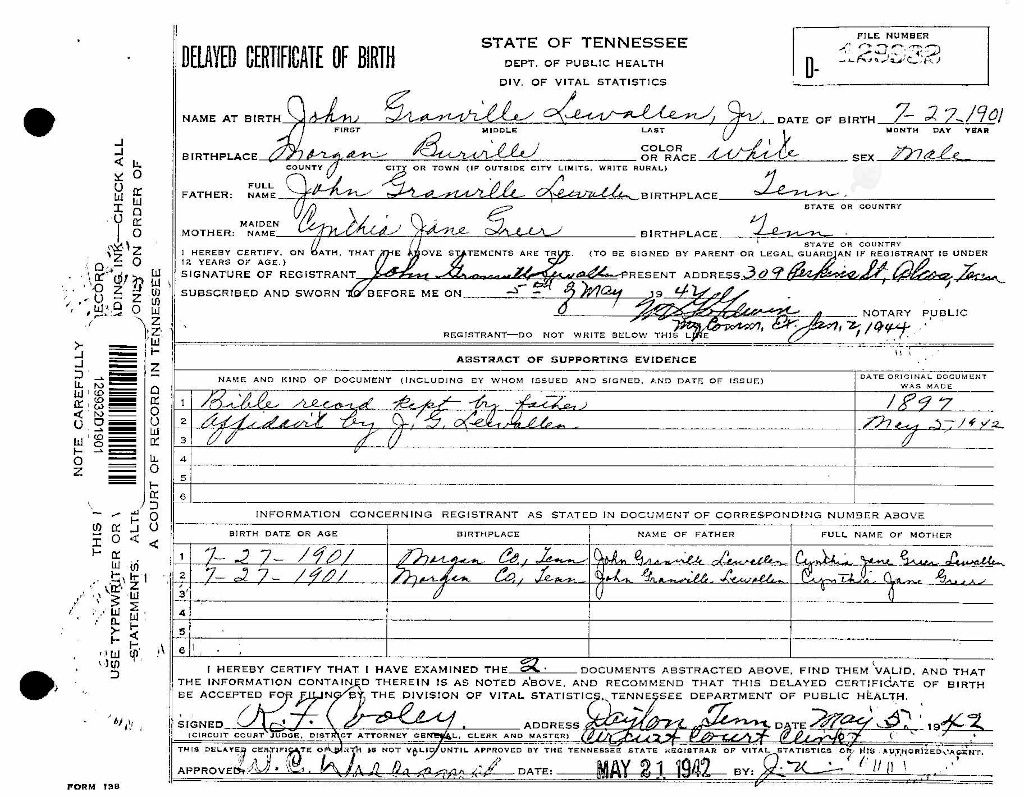 DELAYED CERTIFICATE OF BIRTH
STATE OF TENNESSEE
DEPT. OF PUBLIC HEALTH
DIV. OF VITAL STATISTICS
FILE NUMBER
D-
NAME AT BIRTH John Granville Lewallen, Jr. DATE OF BIRTH 7-27-1901
FIRST MIDDLE LAST MONTH DAY YEAR
BIRTHPLACE Morgan Burville COLOR OR RACE white SEX Male
COUNTY CITY OR TOWN (IF OUTSIDE CITY LIMITS, WRITE RURAL)
FATHER: FULL NAME John Granville Lewallen BIRTHPLACE Tenn.
STATE OR COUNTRY
MOTHER: MAIDEN NAME Cynthia Jane Greer BIRTHPLACE Tenn.
STATE OR COUNTRY
I HEREBY CERTIFY, ON OATH, THAT THE ABOVE STATEMENTS ARE TRUE. (TO BE SIGNED BY PARENT OR LEGAL GUARDIAN IF REGISTRANT IS UNDER
12 YEARS OF AGE.)
SIGNATURE OF REGISTRANT John Granville Lewallen PRESENT ADDRESS 309 Perkins St, Alcoa, Tenn
SUBSCRIBED AND SWORN TO BEFORE ME ON 5th of May 1942
NOTARY PUBLIC
My Comm. Ex. Jan. 2, 1944
REGISTRANT—DO NOT WRITE BELOW THIS LINE
ABSTRACT OF SUPPORTING EVIDENCE
NAME AND KIND OF DOCUMENT (INCLUDING BY WHOM ISSUED AND SIGNED, AND DATE OF ISSUE) DATE ORIGINAL DOCUMENT WAS MADE
1 Bible record kept by father 1897
2 Affidavit by J. G. Lewallen May 5, 1942
3
4
5
6
INFORMATION CONCERNING REGISTRANT AS STATED IN DOCUMENT OF CORRESPONDING NUMBER ABOVE
BIRTH DATE OR AGE BIRTHPLACE NAME OF FATHER FULL NAME OF MOTHER
1 7-27-1901 Morgan Co, Tenn John Granville Lewallen Cynthia Jane Greer Lewallen
2 7-27-1901 Morgan Co, Tenn John Granville Lewallen Cynthia Jane Greer
3
4
5
6
I HEREBY CERTIFY THAT I HAVE EXAMINED THE 2 DOCUMENTS ABSTRACTED ABOVE, FIND THEM VALID, AND THAT
THE INFORMATION CONTAINED THEREIN IS AS NOTED ABOVE, AND RECOMMEND THAT THIS DELAYED CERTIFICATE OF BIRTH
BE ACCEPTED FOR FILING BY THE DIVISION OF VITAL STATISTICS, TENNESSEE DEPARTMENT OF PUBLIC HEALTH.
SIGNED R. F. Cooley ADDRESS Dayton Tenn DATE May 5, 1942
(CIRCUIT COURT JUDGE, DISTRICT ATTORNEY GENERAL, CLERK AND MASTER) Circuit Court Clerk
THIS DELAYED CERTIFICATE OF BIRTH IS NOT VALID UNTIL APPROVED BY THE TENNESSEE STATE REGISTRAR OF VITAL STATISTICS OR HIS AUTHORIZED AGENT.
APPROVED W. C. DATE: MAY 21 1942 BY:
FORM 13B
NOTE CAREFULLY
THIS RECORD
USE TYPEWRITER OR
DING INK—CHECK ALL
STATEMENTS. ALTE
ONLY ON ORDER OF
A COURT OF RECORD IN TENNESSEE
129932D1901